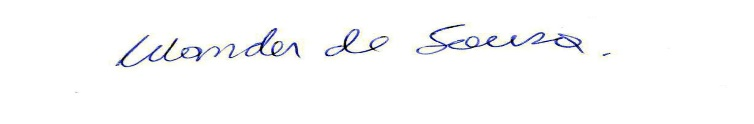 Wander de Souza.